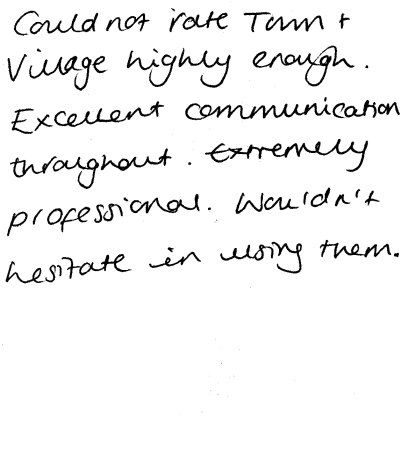 Could not rate Town +
Village highly enough.
Excellent communication
throughout. Extremely
professional. Wouldn't
hesitate in using them.